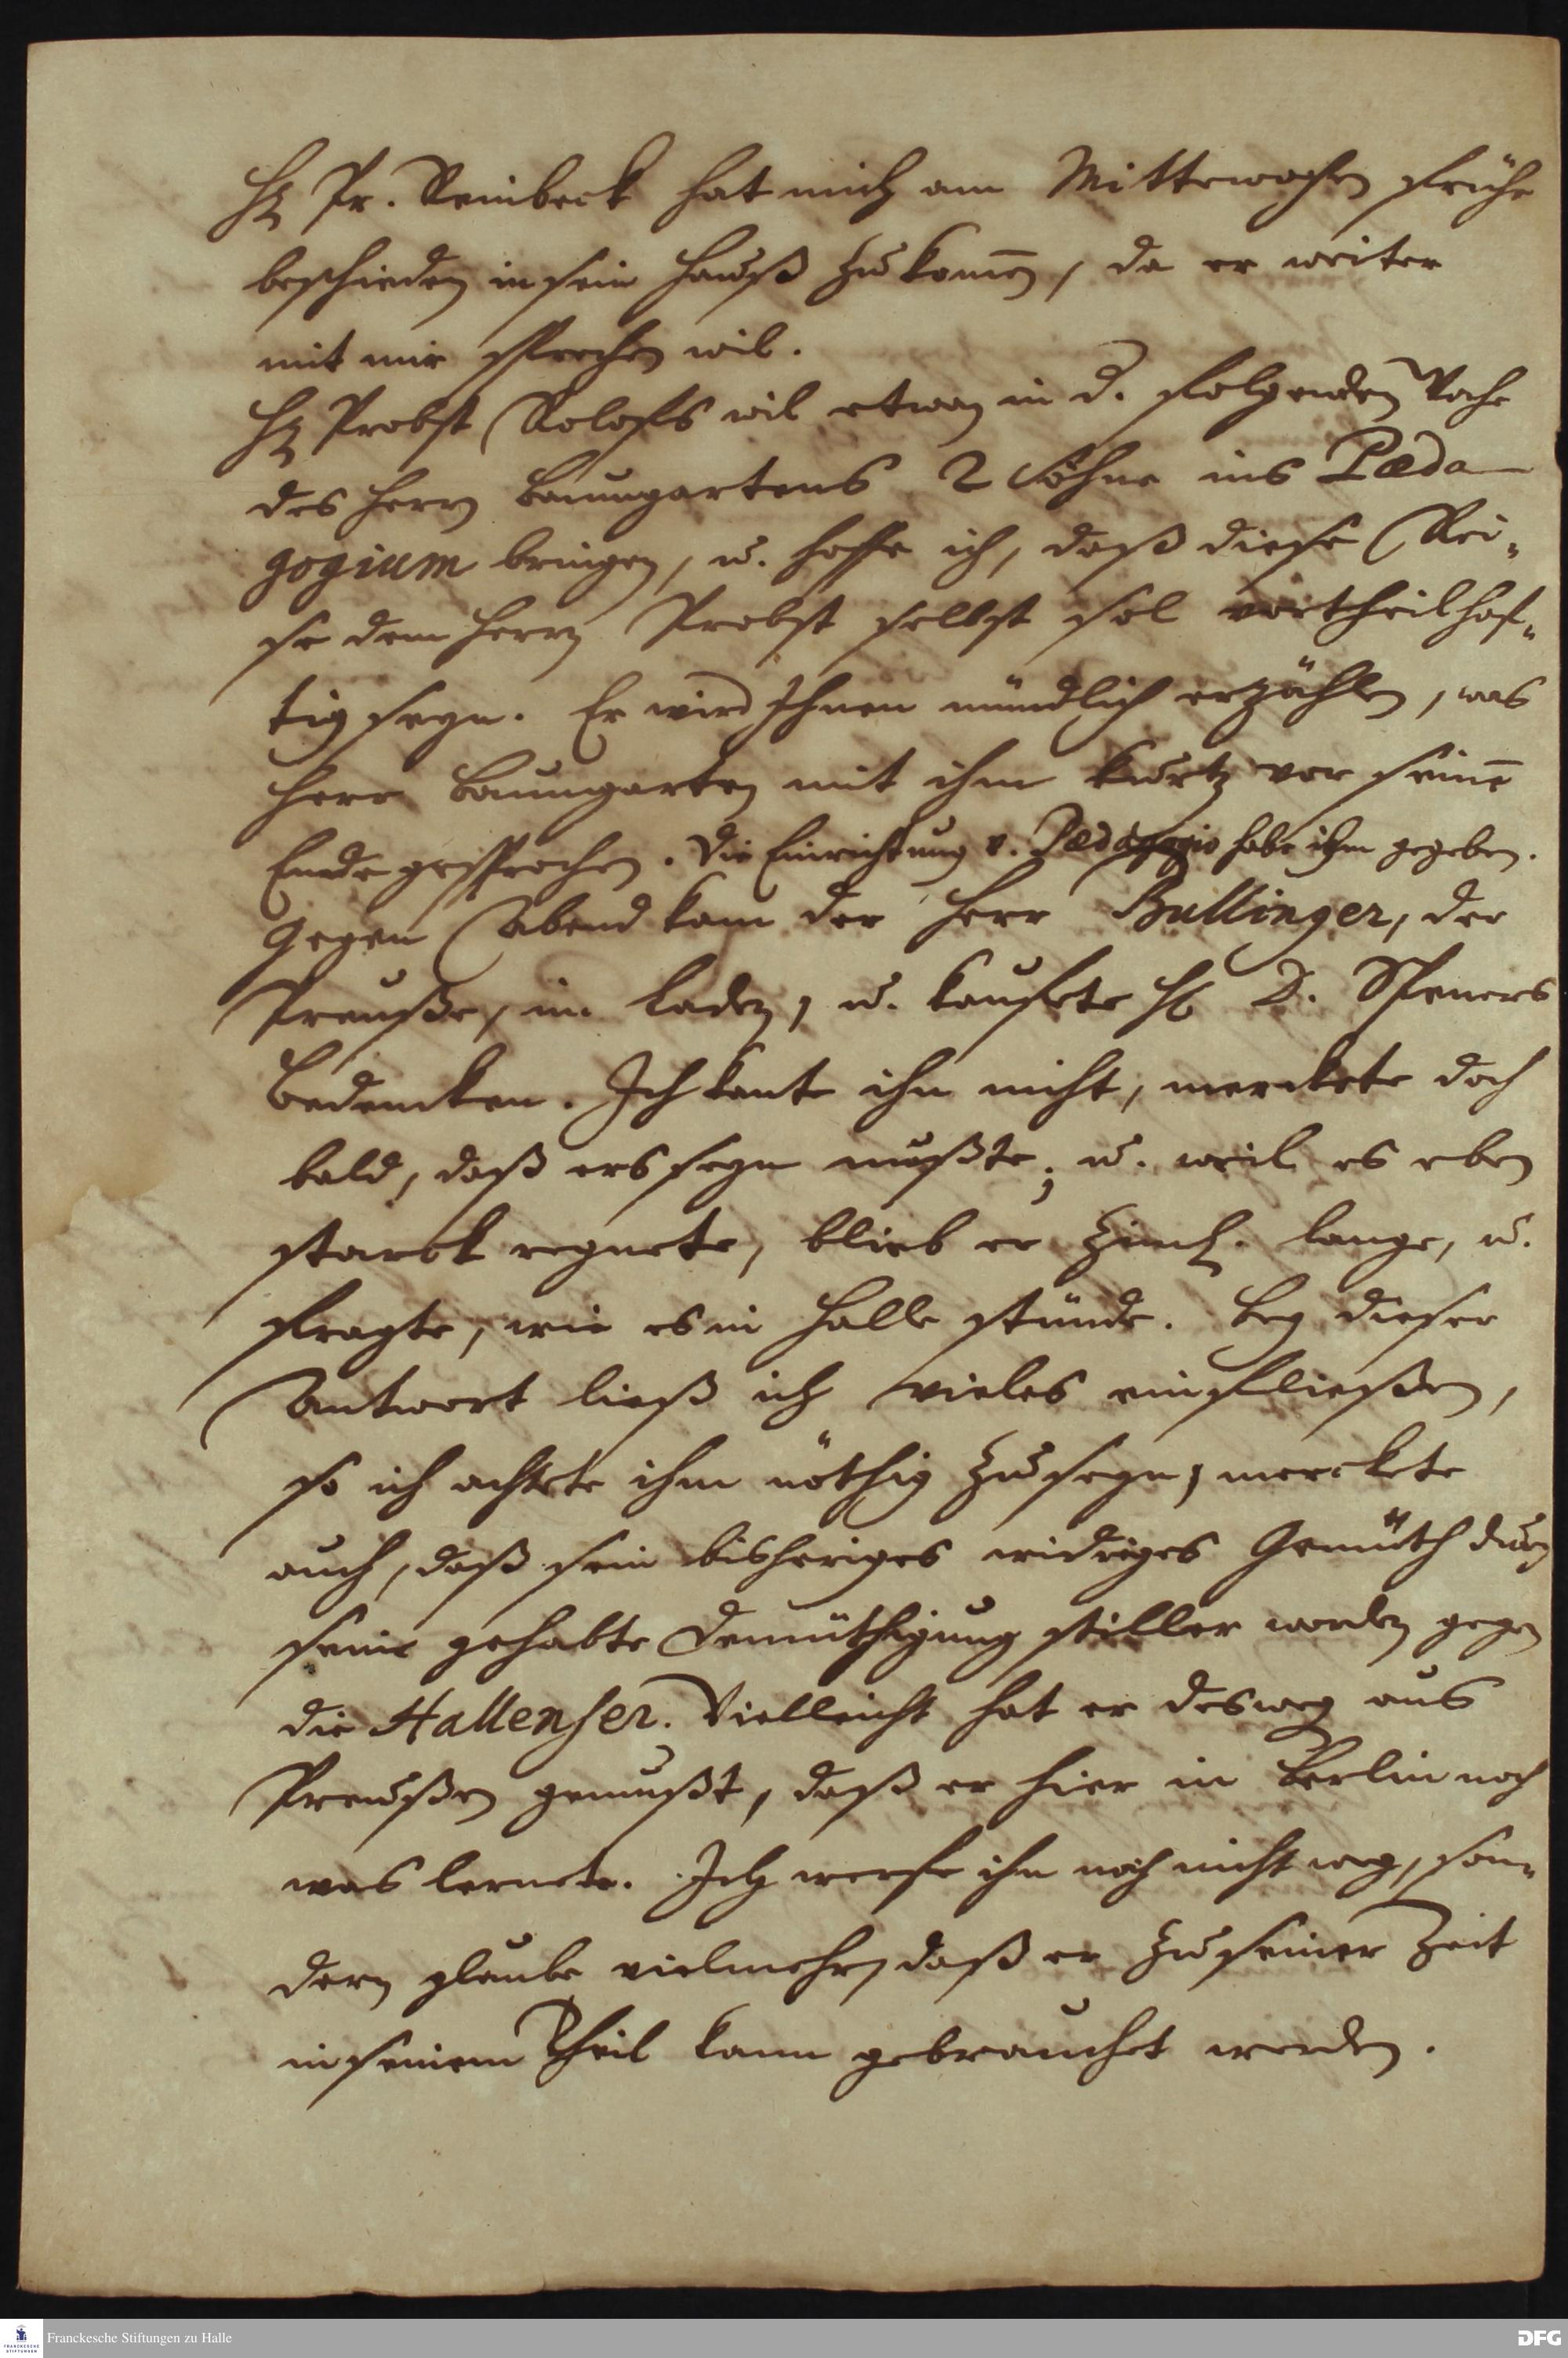 Hr. Pr. Reinbeck hat mich am Mittewochen frühe
beschieden in sein Hauß zu komen, da er weiter
mit mir sprechen wil.
Hr. Probst Roloffs wil etwan in d. folgenden Woche
des Herrn Baumgartens 2 Söhne ins Pæda-
gogium bringen, u. hoffe ich, daß diese Rei-
se dem Herrn Probst selbst sol vortheilhaf-
tig seyn. Er wird Ihnen mündlich erzählen, was
Herr Baumgarten mit ihm kurtz vor seinē
Ende gesprochen. Die Einrichtung v. Pædagogio habe ihm gegeben.
Gegen Abend kam der Herr Bullinger, der
Preuße, im Laden, u. kaufete H. D. Speners
Bedencken. Ich kante ihn nicht, merckete doch
bald, daß ers seyn mußte; u. weil es eben
starck regnete, blieb er ziml. lange, u.
fragte, wie es in Halle stünde. Bey dieser
Antwort ließ ich vieles einfließen,
so ich achtete ihm nöthig zu seyn; merckete
auch, daß sein bisheriges widriges Gemüth durch
seine gehabte Demüthigung stiller worden gegen
die Hallenser. Vielleicht hat er desweg aus
Preußen gemußt, daß er hier in Berlin noch
was lernete. Ich werfe ihn noch nicht weg, son-
dern glaube vielmehr, daß er zu seiner Zeit
in seinem Theil kann gebrauchet werden.
FRANCKESCHE STIFTUNGEN
Franckesche Stiftungen zu Halle
DFG